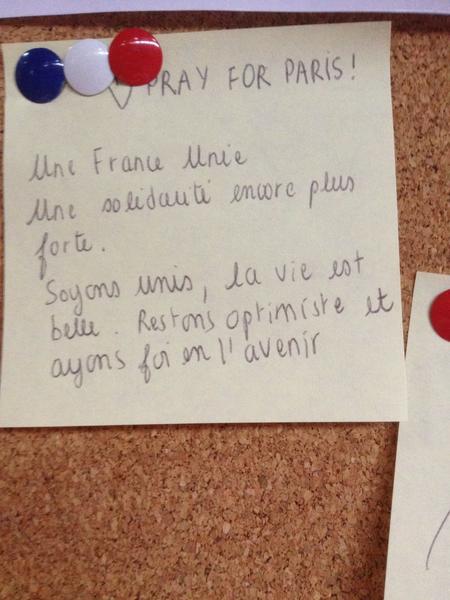 ♡ PRAY FOR PARIS!
Une France Unie
Une solidauté encore plus
forte.
Soyons unis, la vie est
belle. Restons optimiste et
ayons foi en l'avenir